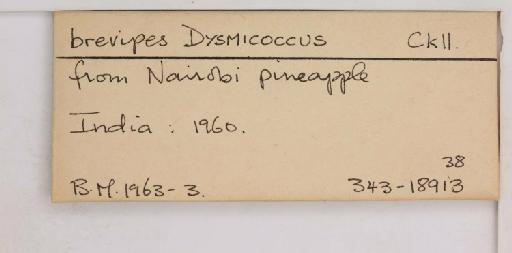 brevipes DYSMICOCCUS Ckll.
from Nairobi pineapple
India : 1960.
38
B.M. 1963-3. 343-18913